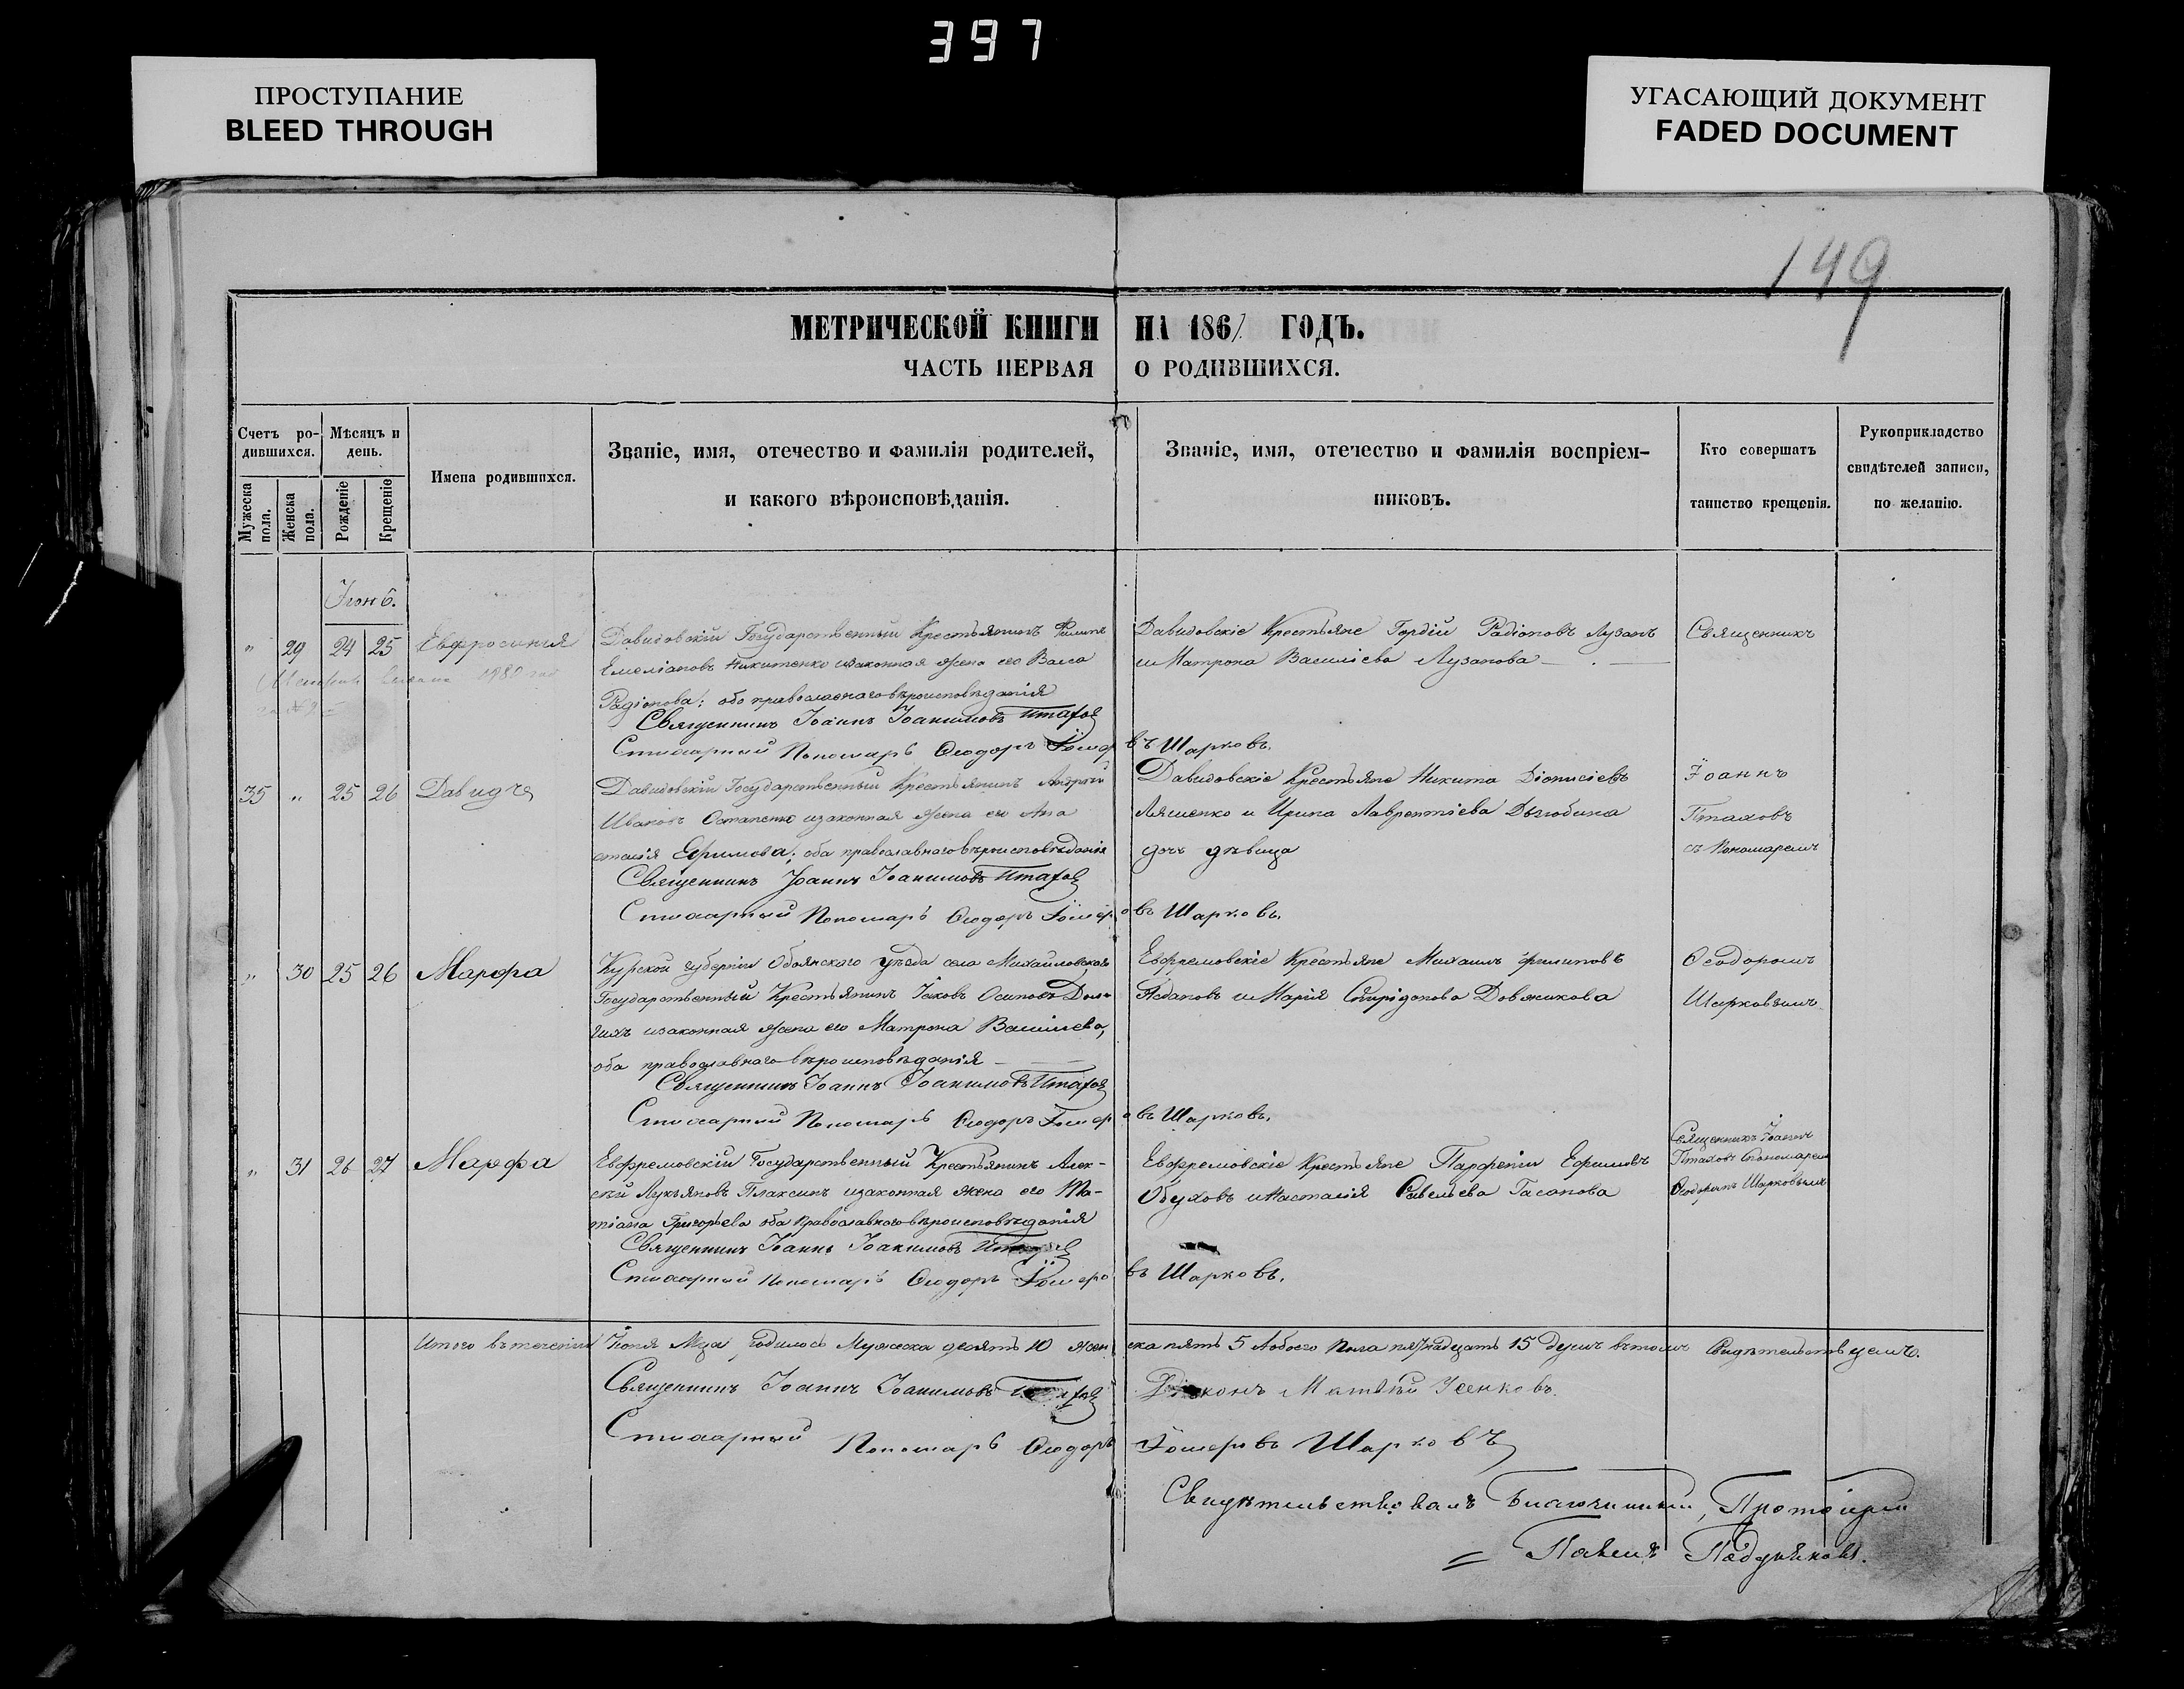 397
ПРОСТУПАНИЕ
BLEED THROUGH
УГАСАЮЩИЙ ДОКУМЕНТ
FADED DOCUMENT
149
МЕТРИЧЕСКОЙ КНИГИ НА 1861 ГОДЪ.
ЧАСТЬ ПЕРВАЯ О РОДИВШИХСЯ.
Счетъ ро-
дившихся.
Мужеска пола.
Женска пола.
Мѣсяцъ и
день.
Рожденіе
Крещеніе
Имена родившихся.
Званіе, имя, отечество и фамилія родителей,
и какого вѣроисповѣданія.
Званіе, имя, отечество и фамилія воспріем-
никовъ.
Кто совершатъ
таинство крещенія.
Рукоприкладство
свидѣтелей записи,
по желанію.
" 29 24 25 Евфросинія
Давидовскій Государственный Крестьянинъ Филипъ
Емеліановъ Никитенко изаконная жена его Васса
Радіонова; оба православнаго вѣроисповѣданія
Священникъ Іоаннъ Іоакимовъ Птаховъ
Стихарный Пономарь Ѳеодоръ
въ Шарковъ.
Давидовскіе Крестьяне Гордій Радіоновъ Лузанъ
и Матрона Василіева Лузанова
Священникъ
35 " 25 26 Давидъ
Давидовскій Государственный Крестьянинъ Андрей
Ивановъ Остапенко изаконная жена его Ана
стасія Ефимова; оба православнаго вѣроисповѣданія
Священникъ Іоаннъ Іоакимовъ Птаховъ
Стихарный Пономарь Ѳеодоръ
овъ Шарковъ.
Давидовскіе Крестьяне Никита Діонисіевъ
Ляшенко и Ирина Лаврентіева
дочь дѣвица
Іоаннъ
Птаховъ
съ Пономаремъ
" 30 25 26 Марфа
Курской губерніи Обоянскаго уѣзда села Михайловскаго
Государственный Крестьянинъ Іаковъ Осиповъ Дол-
гихъ изаконная жена его Матрона Василіева,
оба православнаго вѣроисповѣданія
Священникъ Іоаннъ Іоакимовъ Птаховъ
Стихарный Пономарь Ѳеодоръ
овъ Шарковъ.
Евфремовскіе Крестьяне Михаилъ Филиповъ
и Марія Спиридонова Довжикова
Ѳеодоромъ
Шарковымъ
" 31 26 27 Марфа
Евфремовскій Государственный Крестьянинъ Алек-
сѣй Лукьяновъ Плаксинъ изаконная жена его Та-
тіана Григорьева оба православнаго вѣроисповѣданія
Священникъ Іоаннъ Іоакимовъ Птаховъ
Стихарный Пономарь Ѳеодоръ
въ Шарковъ.
Евфремовскіе Крестьяне Парфеній Ефимовъ
Обуховъ и Настасія Савельева Гасанова
Священникъ Іоаннъ
Птаховъ спономаремъ
Ѳеодоромъ Шарковымъ
Итого втеченіи Іюня Мца родилось Мужеска десять 10 жен ска пять 5 Aобоего Пола пятнадцать 15 душъ вътомъ Свидѣтельствуемъ.
Священникъ Іоаннъ Іоакимовъ Птаховъ
Діаконъ Матѳѣй Усенковъ.
Стихарный Пономарь Ѳеодоръ Шарковъ
Свидѣтельствовалъ Благочинный, Протоіерей
Павелъ